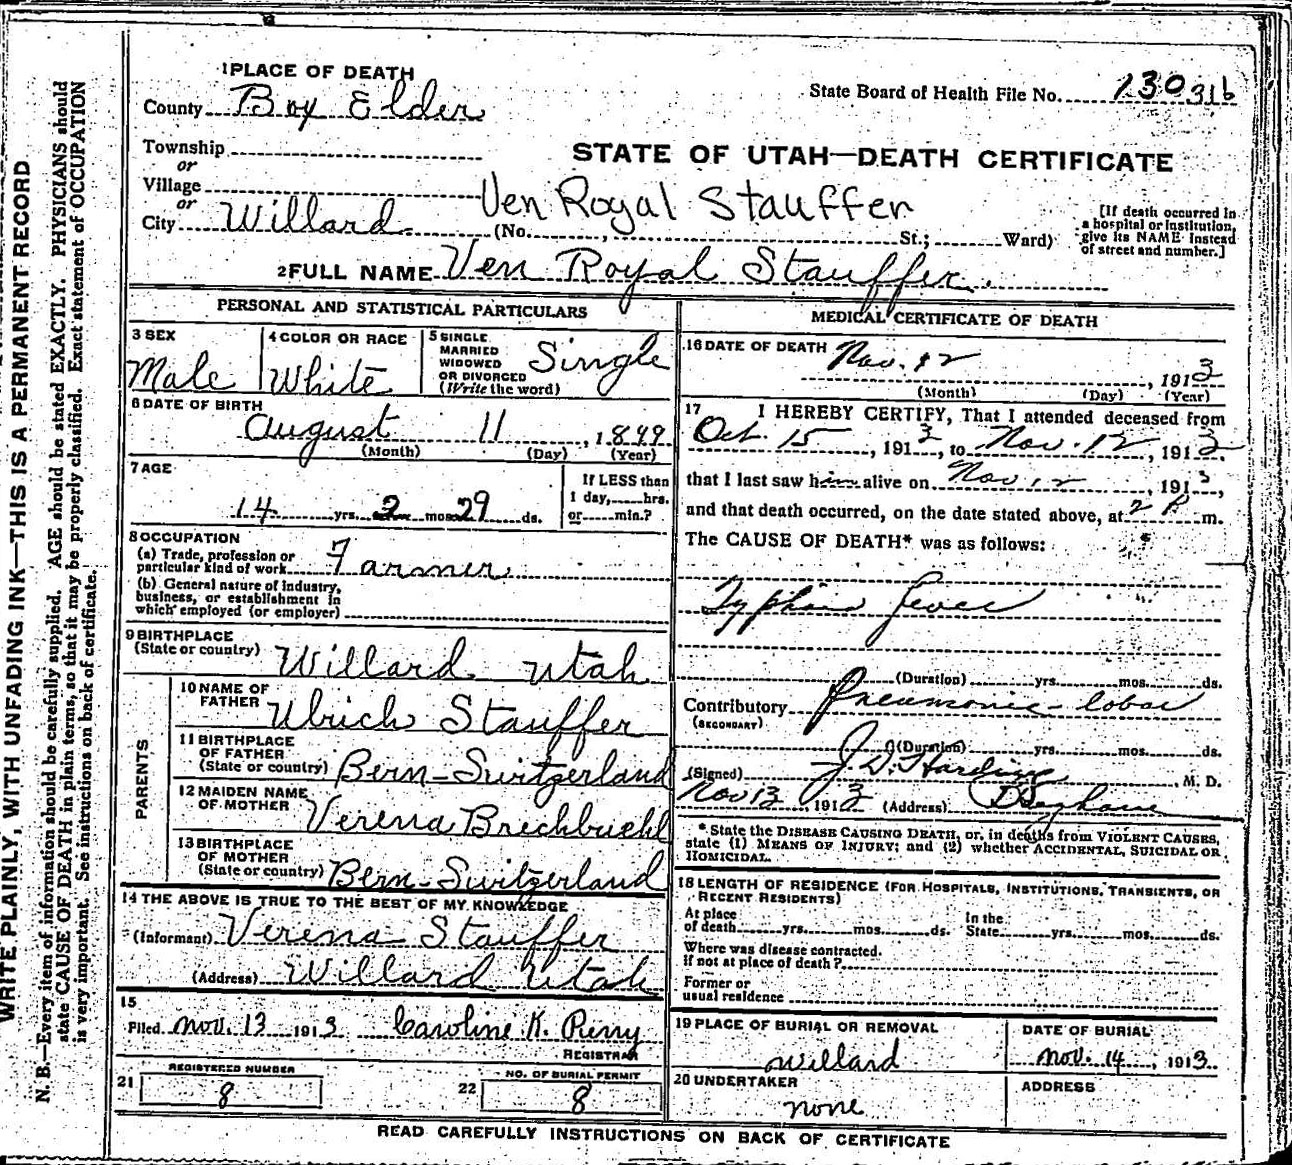 1 PLACE OF DEATH
County Box Elder
State Board of Health File No. 130 316
Township
or
Village
or
City Willard
STATE OF UTAH—DEATH CERTIFICATE
Ven Royal Stauffer
(No. , St.; Ward)
[If death occurred in
a hospital or institution,
give its NAME instead
of street and number.]
2 FULL NAME Ven Royal Stauffer
PERSONAL AND STATISTICAL PARTICULARS
3 SEX
Male
4 COLOR OR RACE
White
5 SINGLE
MARRIED
WIDOWED
OR DIVORCED
(Write the word)
Single
6 DATE OF BIRTH
August 11, 1899
(Month) (Day) (Year)
7 AGE
14 yrs. 2 mos. 29 ds.
If LESS than
1 day, hrs.
or min.?
8 OCCUPATION
(a) Trade, profession or
particular kind of work Farmer
(b) General nature of industry,
business, or establishment in
which employed (or employer)
9 BIRTHPLACE
(State or country) Willard Utah
PARENTS
10 NAME OF
FATHER Ulrich Stauffer
11 BIRTHPLACE
OF FATHER
(State or country) Bern-Switzerland
12 MAIDEN NAME
OF MOTHER Verena Brechbuehl
13 BIRTHPLACE
OF MOTHER
(State or country) Bern-Switzerland
14 THE ABOVE IS TRUE TO THE BEST OF MY KNOWLEDGE
(Informant) Verena Stauffer
(Address) Willard Utah
15
Filed Nov. 13 1913 Caroline K. Perry
REGISTRAR
21 REGISTERED NUMBER
8
22 NO. OF BURIAL PERMIT
8
MEDICAL CERTIFICATE OF DEATH
16 DATE OF DEATH Nov. 12, 1913
(Month) (Day) (Year)
17 I HEREBY CERTIFY, That I attended deceased from
Oct. 15, 1913, to Nov. 12, 1913
that I last saw him alive on Nov 12, 1913,
and that death occurred, on the date stated above, at 2 P m.
The CAUSE OF DEATH* was as follows:
Typhoid fever
(Duration) yrs. mos. ds.
Contributory Pneumonia-lobar
(SECONDARY)
(Duration) yrs. mos. ds.
(Signed) J. D. Harding M. D.
Nov 13 1913 (Address)
* State the DISEASE CAUSING DEATH, or, in deaths from VIOLENT CAUSES,
state (1) MEANS OF INJURY; and (2) whether ACCIDENTAL, SUICIDAL OR
HOMICIDAL.
18 LENGTH OF RESIDENCE (FOR HOSPITALS, INSTITUTIONS, TRANSIENTS, OR
RECENT RESIDENTS)
At place
of death yrs. mos. ds.
In the
State yrs. mos. ds.
Where was disease contracted.
if not at place of death?
Former or
usual residence
19 PLACE OF BURIAL OR REMOVAL
Willard
DATE OF BURIAL
Nov. 14, 1913
20 UNDERTAKER
none
ADDRESS
READ CAREFULLY INSTRUCTIONS ON BACK OF CERTIFICATE
WRITE PLAINLY, WITH UNFADING INK—THIS IS A PERMANENT RECORD
N. B.—Every item of information should be carefully supplied. AGE should be stated EXACTLY. PHYSICIANS should
state CAUSE OF DEATH in plain terms, so that it may be properly classified. Exact statement of OCCUPATION
is very important. See instructions on back of certificate.